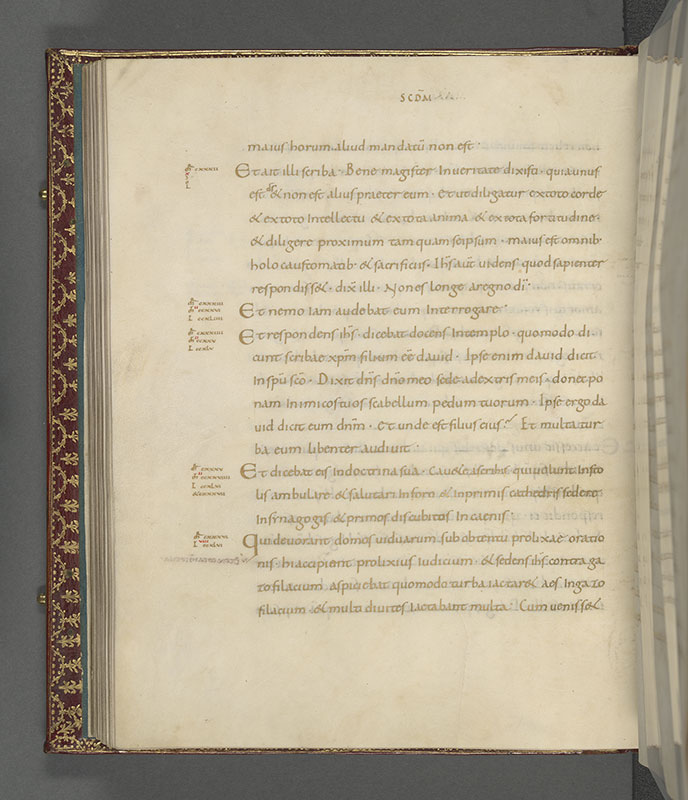 SCDM
maius horum aliud mandatū non est·
Et ait illi scriba· Bene magister In ueritate dixisti· quia unus
est dš & non est alius praeter eum· Et ut diligatur ex toto corde
& ex toto Intellectu & ex tota anima & ex tota fortitudine·
& diligere proximum tam quam seipsum· maius est omnib·
holocaustomatib· & sacrificiis· Ihs aut̄ uidens quod sapienter
respondiss&· dix̄ illi· Non es longe a regno dī·
Et nemo Iam audebat eum Interrogare·
Et respondens ihs̄· dicebat docens In templo· quomodo di
cunt scribae xpm̄ filium eē dauid· Ipse enim dauid dicit
In spū scō· Dixit dn̄s dn̄o meo sede a dextris meis· donec po
nam Inimicos tuos scabellum pedum tuorum· Ipse ergo da
uid dicit eum dn̄m· Et unde est filius eius? Et multa tur
ba eum libenter audiuit·
Et dicebat eis In doctrina sua· Cau&e a scribis qui uolunt In sto
lis ambulare & salutari In foro & In primis cathedris sedere
In synagogis & primos discubitos In caenis·
qui deuorant domos uiduarum sub obtentu prolixae oratio
nis· hi accipient prolixius Iudicium· & sedens ihs̄ contra ga
zofilacium aspiciebat quomodo turba Iactar& aes In gazo
filacium & multi diuites Iactabant multa· Cum veniss&